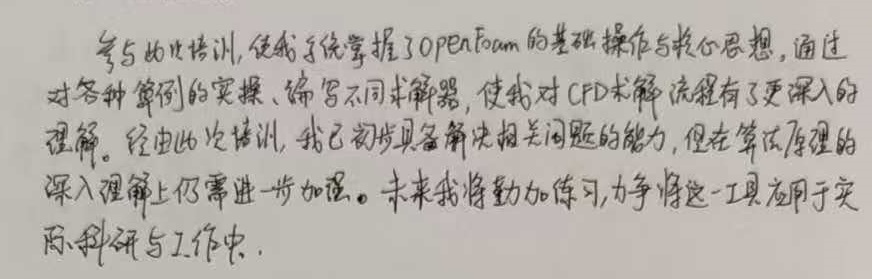 参与此次培训,使我系统掌握了OpenFoam的基础操作与核心思想,通过
对各种算例的实操、编写不同求解器,使我对CFD求解流程有了更深入的
理解。经由此次培训,我已初步具备解决相关问题的能力,但在算法原理的
深入理解上仍需进一步加强。未来我将勤加练习,力争将这一工具应用于实
际科研与工作中.